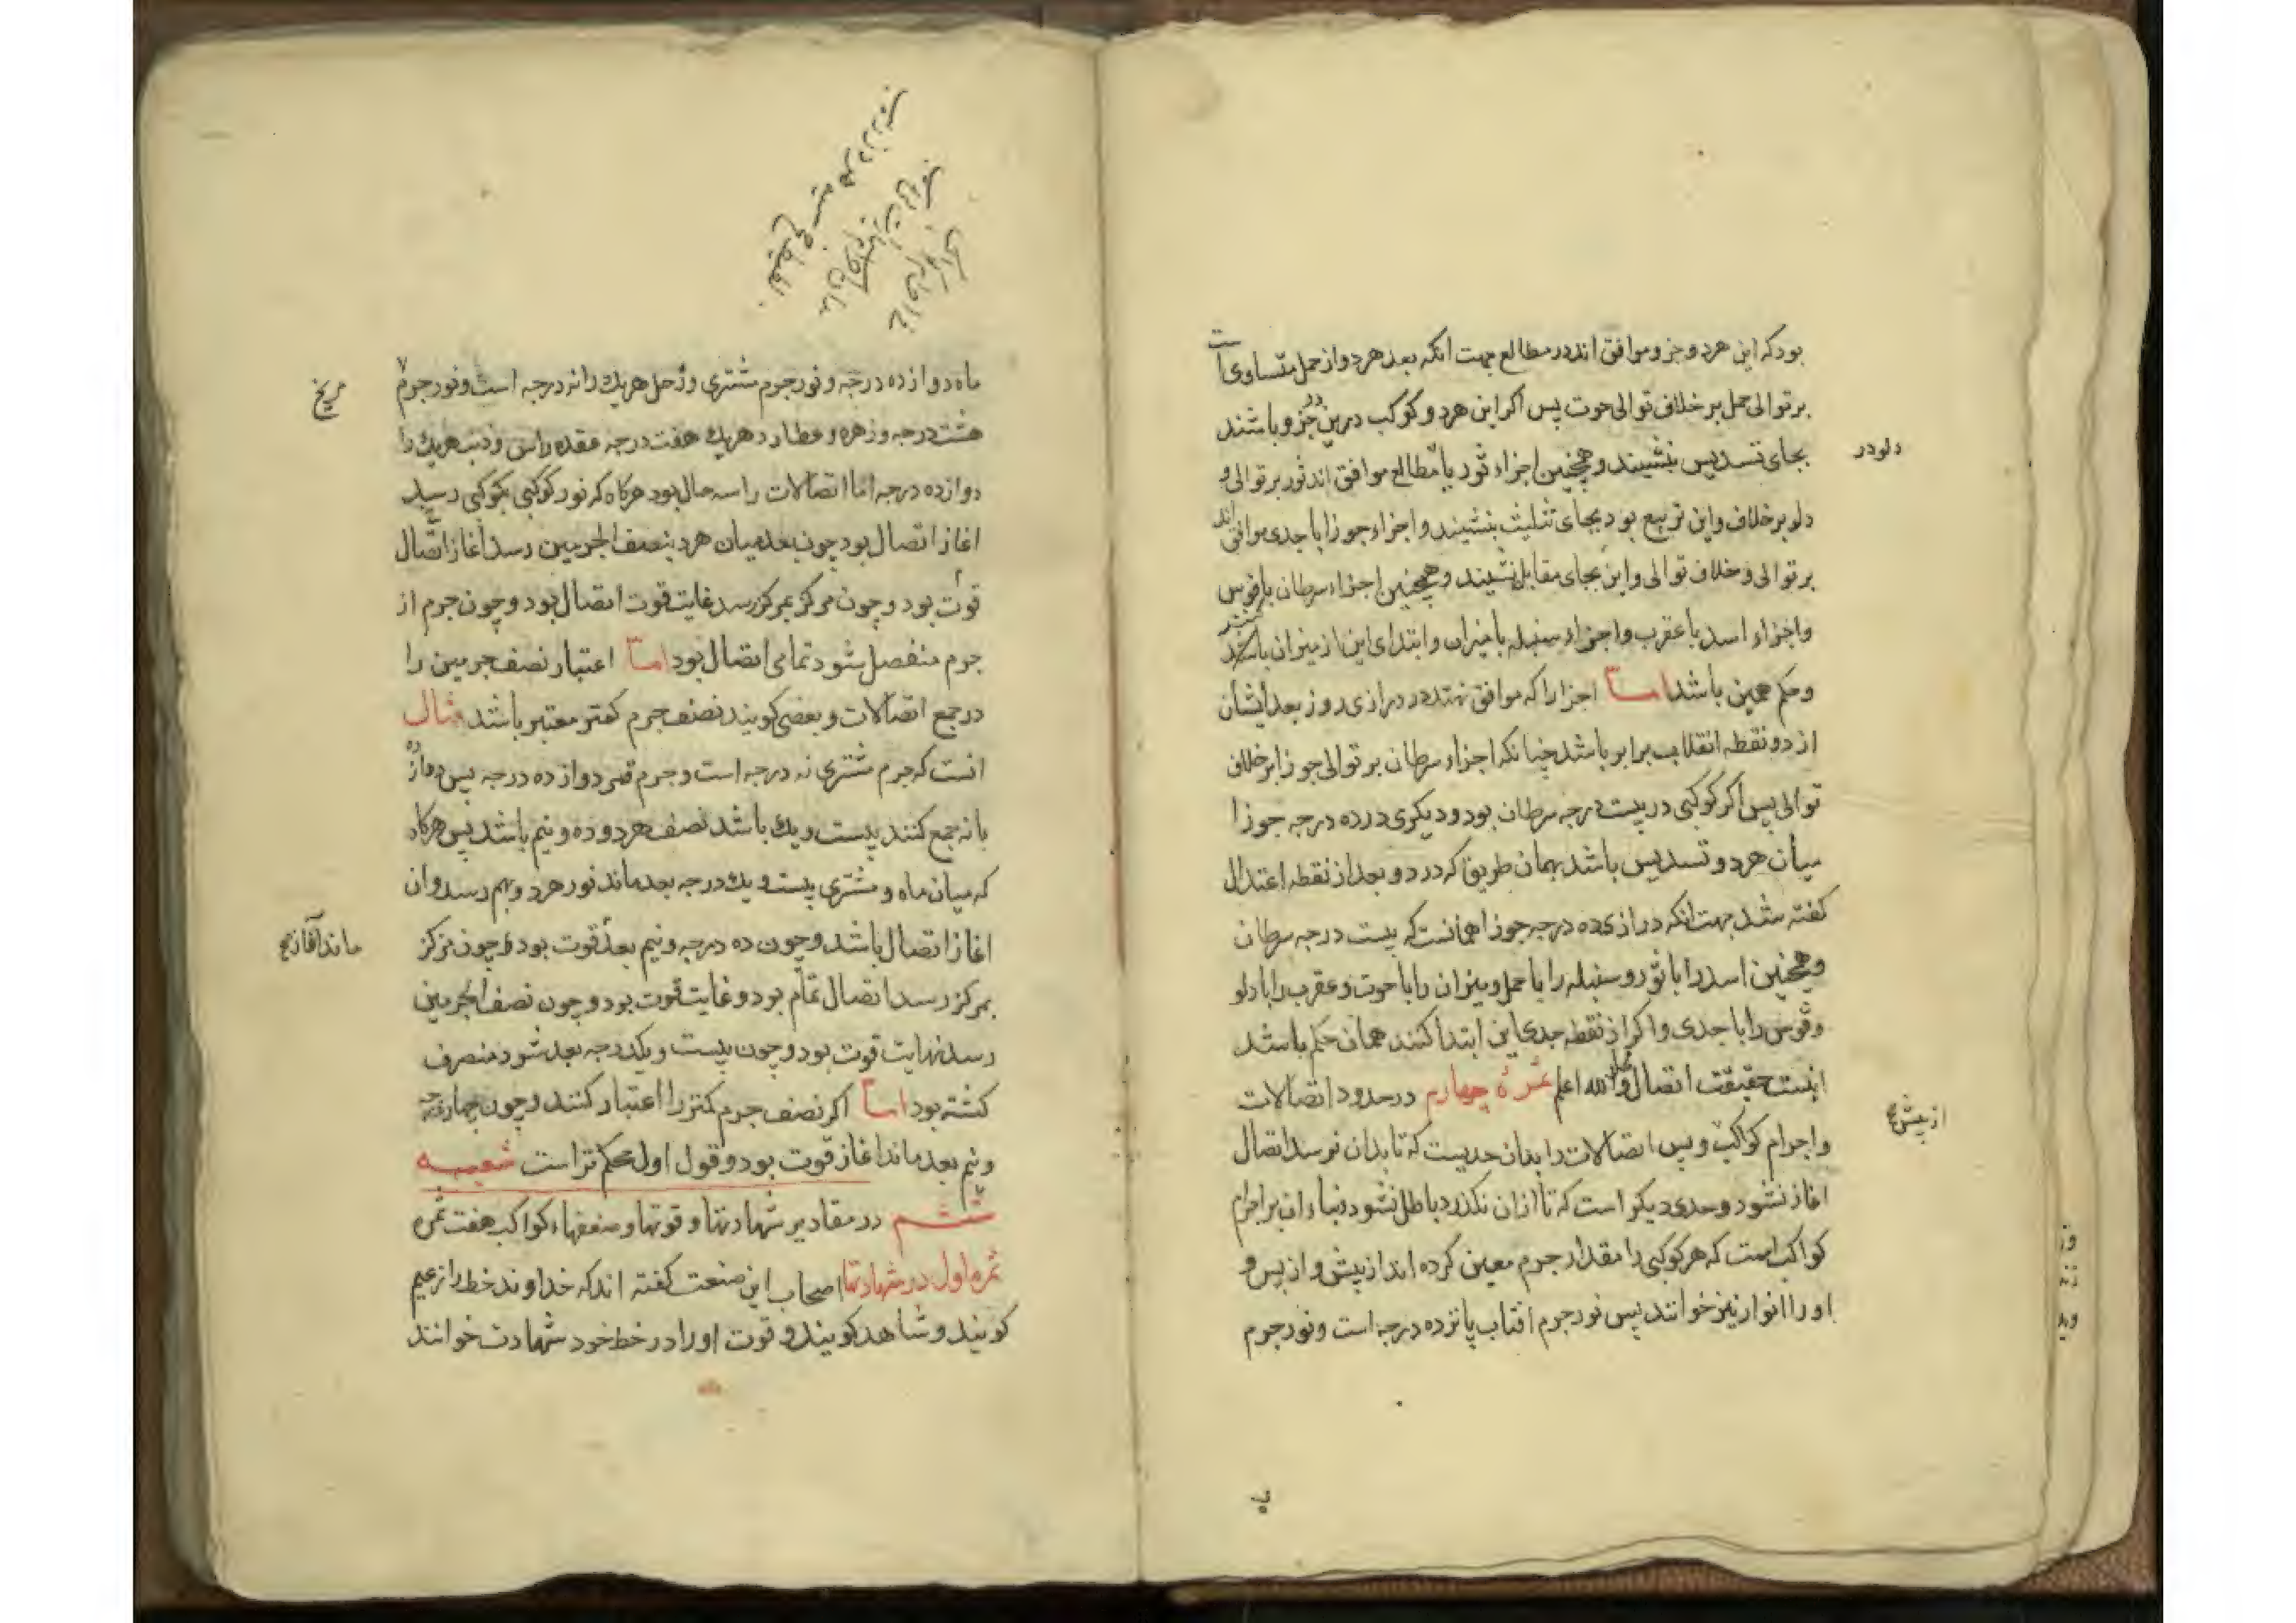 بودکه این هردو جزو موافق اند در مطالع بجهت انکه بعد هردو از حمل متساوی است
بر توالی حمل بر خلاف توالی حوت پس اکر این هردو کوکب درین دو جزو باشند
بجای تسدیس بنشیند و همچنین اجزاء ثور با مطالع موافق اند ثور بر توالی و
دلو در
دلو بر خلاف و این تربیع بود بجای تثلیث بنشیند و اجزاء جوزا با جدی موافق اند
بر توالی و خلاف توالی و این بجای مقابل نشیند و همچنین اجزاء سرطان با قوس
واجزاء اسد با عقرب و اجزاء سنبله با میزان و ابتدای این از میزان
و حکم همین باشد اما اجزا را که موافق نهند در درازی روز بعد ایشان
از دو نقطه انقلاب برابر باشد چنانکه اجزاء سرطان بر توالی جوزا بر خلاف
توالی پس اکر کوکبی در بیست درجه سرطان بود و دیکری در ده درجه جوزا
میان هردو تسدیس باشد بهمان طریق که در دو بعد از نقطه اعتدال
کفته شد بجهت انکه درازی ده درجه جوزا همانست که بیست درجه سرطان
و همچنین اسد را با ثور و سنبله را با حمل و میزان را با حوت و عقرب را با دلو
و قوس را با جدی و اکر از نقطه جدی این ابتدا کنند همان حکم باشد
اینست حقیقت اتصال والله اعلم ثمرهٔ چهارم در حدود اتصالات
و اجرام کواکب و پس اتصالات را بدان حدیست که تا بدان نرسد اتصال
از پیش
اغاز نشود و حدی دیکر است که تا ازان نکذرد باطل نشود و بناء ان بر اجرام
کواکب است که هر کوکبی را مقدار جرم معین کرده اند از پیش و از پس و
او را انوار نیز خوانند پس نور جرم افتاب پانزده درجه است و نور جرم
ماه دوازده درجه و نور جرم مشتری و زحل هریک را نه درجه است و نور جرم
مریخ
هشت درجه و زهره و عطارد هریک هفت درجه عقده راس و ذنب هریک را
دوازده درجه اما اتصالات را سه حال بود هرکاه که نور کوکبی بکوکبی رسید
اغاز اتصال بود چون بعد میان هردو بنصف الجرمین رسد اغاز اتصال
قوت بود و چون مرکز بمرکز رسد غایت قوت اتصال بود و چون جرم از
جرم منفصل شود تمامی اتصال بود اما اعتبار نصف جرمین را
در جمع اتصالات و بعضی کویند نصف جرم کمتر معتبر باشد مثال
انست که جرم مشتری نه درجه است و جرم قمر دوازده درجه پس دوازده
با نه جمع کنند بیست و یک باشد نصف هردو ده و نیم باشد پس هرکاه
که میان ماه و مشتری بیست و یک درجه بعد ماند نور هردو بهم رسد و ان
اغاز اتصال باشد و چون ده درجه و نیم بعد قوت بود و چون مرکز
ماند آغاز
بمرکز رسد اتصال تمام بود و غایت قوت بود و چون نصف الجرمین
رسد نهایت قوت بود و چون بیست و یکدرجه بعد شود منصرف
کشته بود اما اکر نصف جرم کمتر را اعتبار کنند و چون چهار درجه
و نیم بعد ماند اغاز قوت بود و قول اول محکم تر است شعبه
ششم در مقادیر شهادتها و قوتها و ضعفهاء کواکب هفت ثمره
ثمره اول در شهادتها اصحاب این صنعت کفته اند که خداوند خط را زعیم
کویند و شاهد کویند و قوت او را در خط خود شهادت خوانند